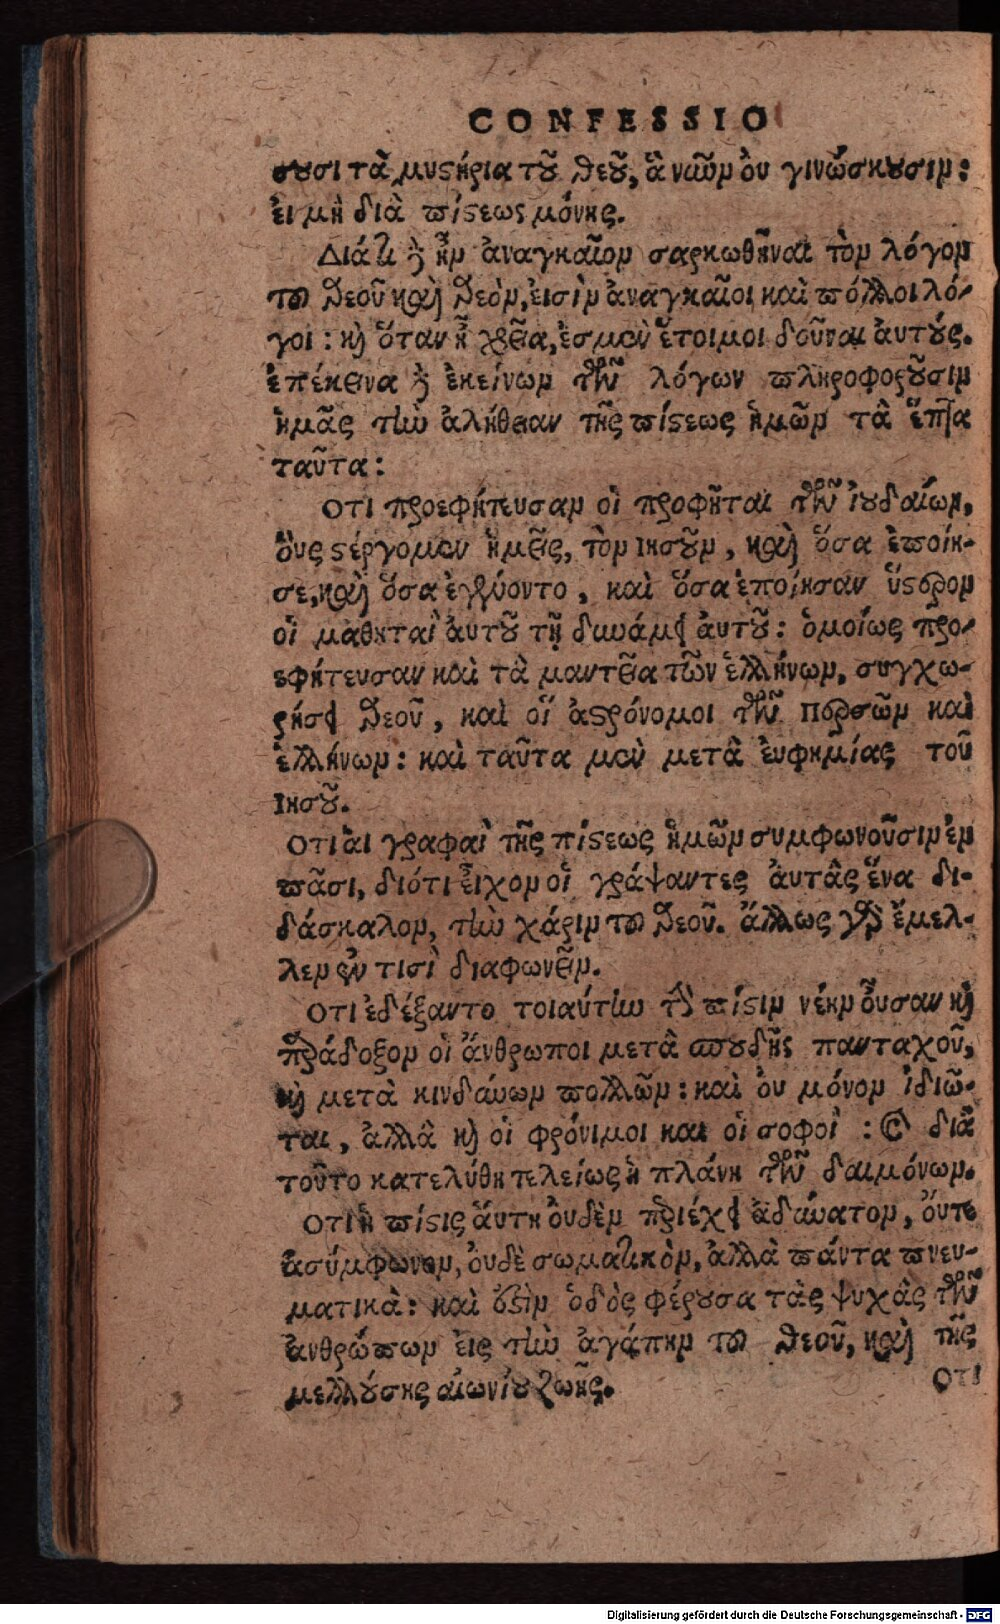 CONFESSIO
σουσι τὰ μυστήρια τοῦ θεοῦ, ἃ νῦν ὀυ γινώσκουσιν:
ἐι μὴ διὰ πίστεως μόνης.
Διάτι δὲ ἦν ἀναγκαῖον σαρκωθῆναι τὸν λόγον
τοῦ θεοῦ καὶ θεὸν, ἐισὶν ἀναγκαῖοι καὶ πόλλοι λό-
γοι: καὶ ὅταν ᾖ χρεία, ἐσμὲν ἕτοιμοι δοῦναι ἀυτούς.
ἐπέκεινα δὲ ἐκείνων τῶν λόγων πληροφοροῦσιν
ἡμᾶς τὴν ἀλήθειαν τῆς πίστεως ἡμῶν τὰ ἕπτα
ταῦτα:
οτι προεφήτευσαν οἱ προφῆται τῶν ἰουδαίων,
ὃυς στέργομεν ἡμεῖς, τὸν ιησοῦν, καὶ ὅσα ἐποίη-
σε, καὶ ὅσα ἐγένοντο, καὶ ὅσα ἐποίησαν ὕστερον
οἱ μαθηταὶ ἀυτοῦ τῇ δυνάμει ἀυτοῦ: ὁμοίως προ-
εφήτευσαν καὶ τὰ μαντεῖα τῶν ἑλλήνων, συγχω-
ρήσει θεοῦ, καὶ οἵ ἀστρόνομοι τῶν περσῶν καὶ
ἑλλήνων: καὶ ταῦτα μὲν μετὰ ἐυφημίας τοῦ
ιησοῦ.
οτι ἁι γραφαὶ τῆς πίστεως ἡμῶν συμφωνοῦσιν ἐν
πᾶσι, διότι εἶχον οἱ γράψαντες ἀυτὰς ἕνα δι-
δάσκαλον, τὴν χάριν τοῦ θεοῦ. ἄλλως γὰρ ἔμελ-
λεν ἐν τισὶ διαφωνεῖν.
οτι ἐδέξαντο τοιαύτην τὴν πίστιν νέην οὖσαν καὶ
παράδοξον οἱ ἄνθρωποι μετὰ σπουδῆς πανταχοῦ,
καὶ μετὰ κινδύνων πολλῶν: καὶ ὀυ μόνον ἰδιῶ-
ται, ἀλλὰ καὶ οἱ φρόνιμοι και οἱ σοφοὶ : καὶ διὰ
τοῦτο κατελύθη τελείως ἡ πλάνη τῶν δαιμόνων.
οτι ἡ πίστις ἅυτη ὀυδὲν περιέχει ἀδύνατον, ὄυτε
ἀσύμφωνον, ὀυδὲ σωματικὸν, ἀλλὰ πάντα πνευ-
ματικὰ: καὶ ἐστὶν ὁδὸς φέρουσα τὰς ψυχὰς τῶν
ἀνθρώπων ἐις τὴν ἀγάπην τοῦ θεοῦ, καὶ τῆς
μελλούσης αἰωνίου ζωῆς.
οτι
Digitalisierung gefördert durch die Deutsche Forschungsgemeinschaft - DFG